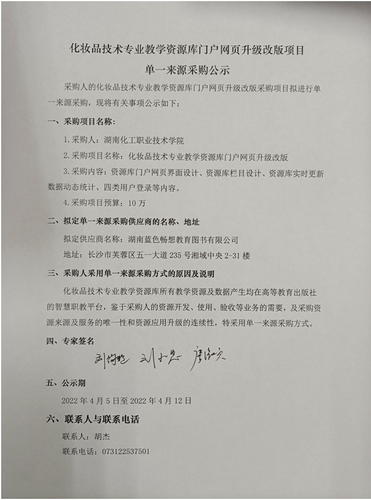 化妆品技术专业教学资源库门户网页升级改版项目
单一来源采购公示
采购人的化妆品技术专业教学资源库门户网页升级改版采购项目拟进行单
一来源采购，现将有关事项公示如下：
一、采购项目名称：
1.采购人：湖南化工职业技术学院
2.采购项目名称：化妆品技术专业教学资源库门户网页升级改版
3.采购内容：资源库门户网页界面设计、资源库栏目设计、资源库实时更新
数据动态统计、四类用户登录等内容。
4.采购项目预算：10 万
二、拟定单一来源采购供应商的名称、地址
拟定供应商名称：湖南蓝色畅想教育图书有限公司
地址：长沙市芙蓉区五一大道 235 号湘域中央 2-31 楼
三、采购人采用单一来源采购方式的原因及说明
化妆品技术专业教学资源库所有教学资源及数据产生均在高等教育出版社
的智慧职教平台，鉴于采购人的资源开发、使用、验收等业务的需要，及采购资
源来源及服务的唯一性和资源应用升级的连续性，特采用单一来源采购方式。
四、专家签名
五、公示期
2022 年 4 月 5 日至 2022 年 4 月 12 日
六、联系人与联系电话
联系人：胡杰
联系电话：073122537501